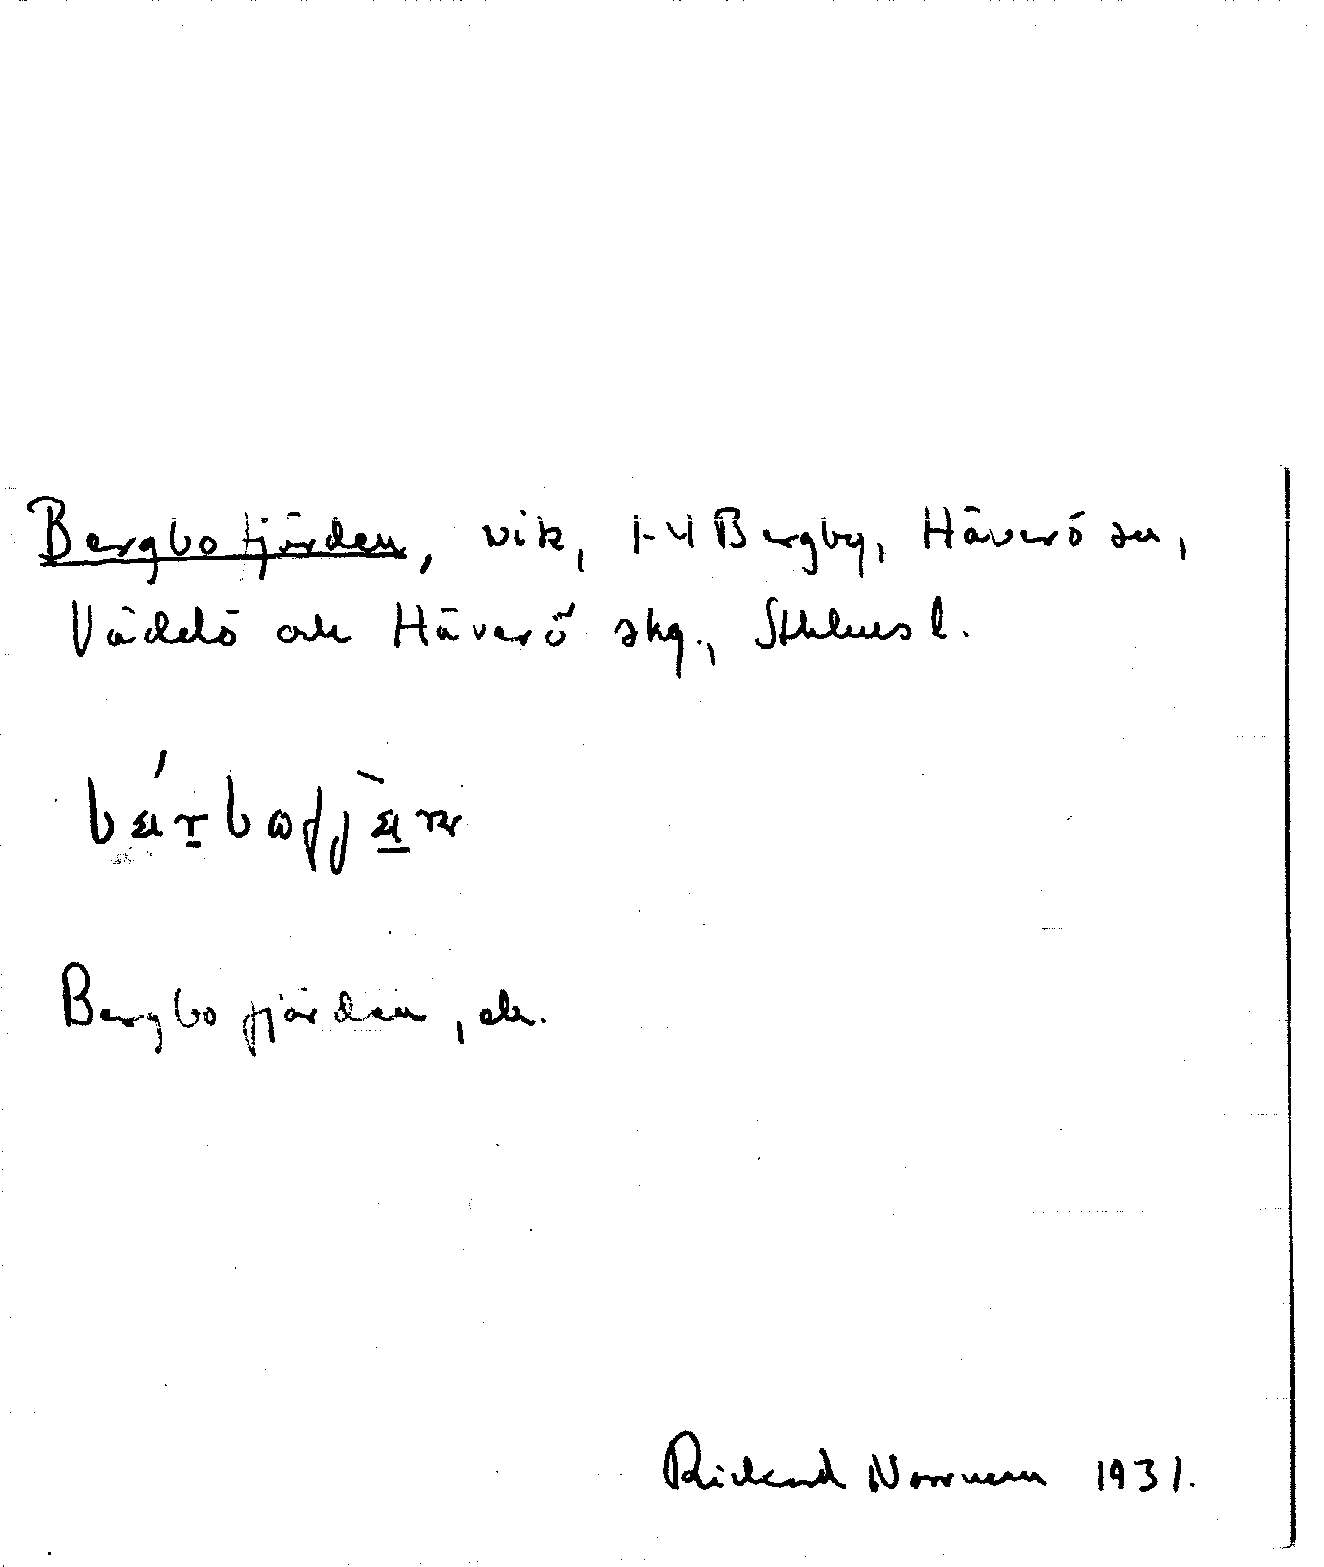 Bergbofjärden, vik, 1-4 Bergby, Häverö sn,
Väddö och Häverö skg., Sthlms l.
Bergbofjärden, ek.
Rickard Norrman 1931.